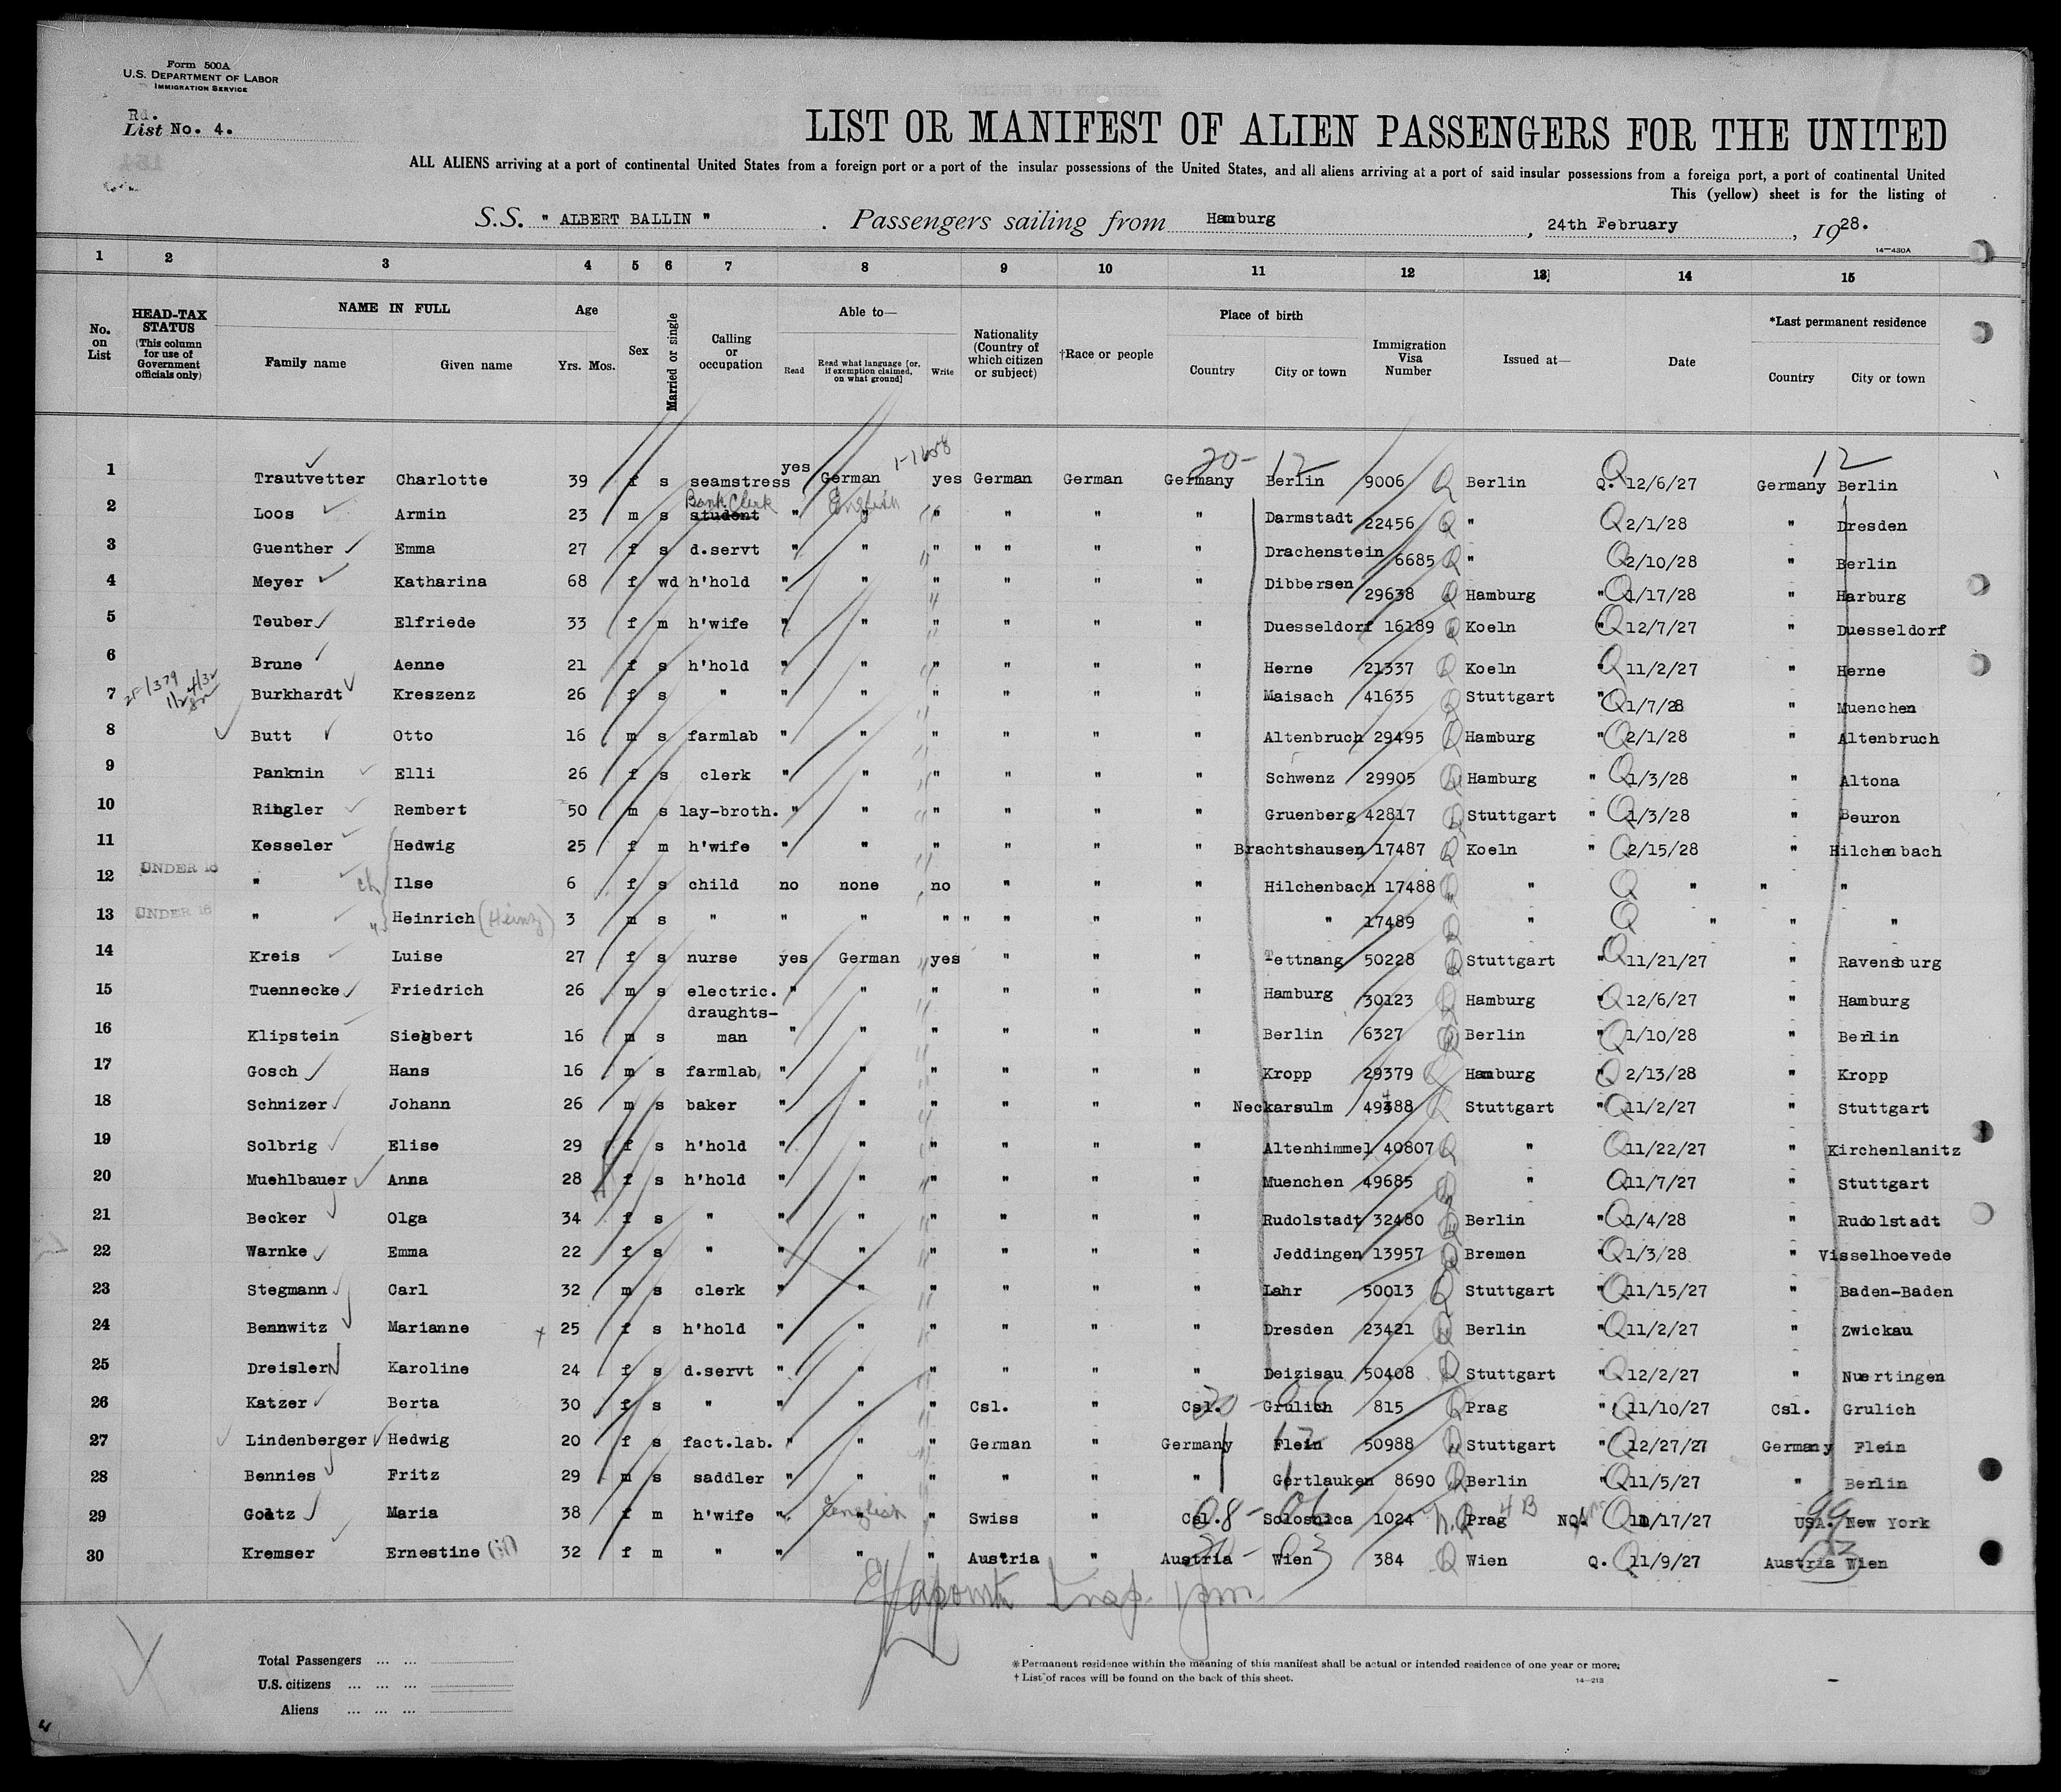 Form 500A
U.S. DEPARTMENT OF LABOR
IMMIGRATION SERVICE
Rd.
List No. 4.
LIST OR MANIFEST OF ALIEN PASSENGERS FOR THE UNITED
ALL ALIENS arriving at a port of continental United States from a foreign port or a port of the insular possessions of the United States, and all aliens arriving at a port of said insular possessions from a foreign port, a port of continental United
This (yellow) sheet is for the listing of
S.S. " ALBERT BALLIN " . Passengers sailing from Hamburg , 24th February , 1928.
14—430A
1 2 3 4 5 6 7 8 9 10 11 12 13 14 15
No. on List
HEAD-TAX STATUS (This column for use of Government officials only)
NAME IN FULL
Family name Given name
Age
Yrs. Mos.
Sex
Married or single
Calling or occupation
Able to—
Read
Read what language [or, if exemption claimed, on what ground]
Write
Nationality (Country of which citizen or subject)
†Race or people
Place of birth
Country City or town
Immigration Visa Number
Issued at—
Date
*Last permanent residence
Country City or town
20- 12 12
1 Trautvetter Charlotte 39 f s seamstress yes German yes German German Germany Berlin 9006 Q Berlin Q. 12/6/27 Germany Berlin
2 Loos Armin 23 m s student Bank Clerk " " English " " " " Darmstadt 22456 Q " Q 2/1/28 " Dresden
3 Guenther Emma 27 f s d.servt " " " " " " " Drachenstein 6685 Q " Q 2/10/28 " Berlin
4 Meyer Katharina 68 f wd h'hold " " " " " " Dibbersen 29638 Q Hamburg " Q 1/17/28 " Harburg
5 Teuber Elfriede 33 f m h'wife " " " " " " Duesseldorf 16189 Q Koeln " Q 12/7/27 " Duesseldorf
6 Brune Aenne 21 f s h'hold " " " " " " Herne 21337 Q Koeln " Q 11/2/27 " Herne
7 Burkhardt Kreszenz 26 f s " " " " " " " Maisach 41635 Q Stuttgart " Q 1/7/28 " Muenchen
8 Butt Otto 16 m s farmlab " " " " " " Altenbruch 29495 Q Hamburg " Q 2/1/28 " Altenbruch
9 Panknin Elli 26 f s clerk " " " " " " Schwenz 29905 Q Hamburg " Q 1/3/28 " Altona
10 Ringler Rembert 50 m s lay-broth. " " " " " " Gruenberg 42817 Q Stuttgart " Q 1/3/28 " Beuron
11 Kesseler Hedwig 25 f m h'wife " " " " " " Brachtshausen 17487 Q Koeln " Q 2/15/28 " Hilchenbach
12 UNDER 16 " ch Ilse 6 f s child no none no " " " Hilchenbach 17488 Q " Q " " "
13 UNDER 16 " " Heinrich (Heinz) 3 m s " " " " " " " " " 17489 Q " Q " " "
14 Kreis Luise 27 f s nurse yes German yes " " " Tettnang 50228 Q Stuttgart " Q 11/21/27 " Ravensburg
15 Tuennecke Friedrich 26 m s electric. " " " " " " Hamburg 30123 Q Hamburg " Q 12/6/27 " Hamburg
16 Klipstein Siegbert 16 m s draughts-man " " " " " " Berlin 6327 Q Berlin " Q 1/10/28 " Berlin
17 Gosch Hans 16 m s farmlab. " " " " " " Kropp 29379 Q Hamburg " Q 2/13/28 " Kropp
18 Schnizer Johann 26 m s baker " " " " " " Neckarsulm 49388 Q Stuttgart " Q 11/2/27 " Stuttgart
19 Solbrig Elise 29 f s h'hold " " " " " " Altenhimmel 40807 Q " Q 11/22/27 " Kirchenlanitz
20 Muehlbauer Anna 28 f s h'hold " " " " " " Muenchen 49685 Q " Q 11/7/27 " Stuttgart
21 Becker Olga 34 f s " " " " " " " Rudolstadt 32480 Q Berlin " Q 1/4/28 " Rudolstadt
22 Warnke Emma 22 f s " " " " " " " Jeddingen 13957 Q Bremen " Q 1/3/28 " Visselhoevede
23 Stegmann Carl 32 m s clerk " " " " " " Lahr 50013 Q Stuttgart " Q 11/15/27 " Baden-Baden
24 Bennwitz Marianne x 25 f s h'hold " " " " " " Dresden 23421 Q Berlin " Q 11/2/27 " Zwickau
25 Dreisler Karoline 24 f s d.servt " " " " " " Deizisau 50408 Q Stuttgart " Q 12/2/27 " Nuertingen
26 Katzer Berta 30 f s " " " " Csl. " Csl. Grulich 815 Q Prag " Q 11/10/27 Csl. Grulich
27 Lindenberger Hedwig 20 f s fact.lab. " " " German " Germany Flein 50988 Q Stuttgart " Q 12/27/27 Germany Flein
28 Bennies Fritz 29 m s saddler " " " " " " Gertlauken 8690 Q Berlin " Q 11/5/27 " Berlin
29 Goetz Maria 38 f m h'wife " " English " Swiss " Csl. Soloshica 1024 Prag 4 B NQ. Q 11/17/27 USA. New York
30 Kremser Ernestine 32 f m " " " " Austria " Austria Wien 384 Q Wien Q. Q 11/9/27 Austria Wien
1 pm.
Total Passengers ... ...
U.S. citizens ... ... ...
Aliens ... ... ...
* Permanent residence within the meaning of this manifest shall be actual or intended residence of one year or more.
† List of races will be found on the back of this sheet.
14—213